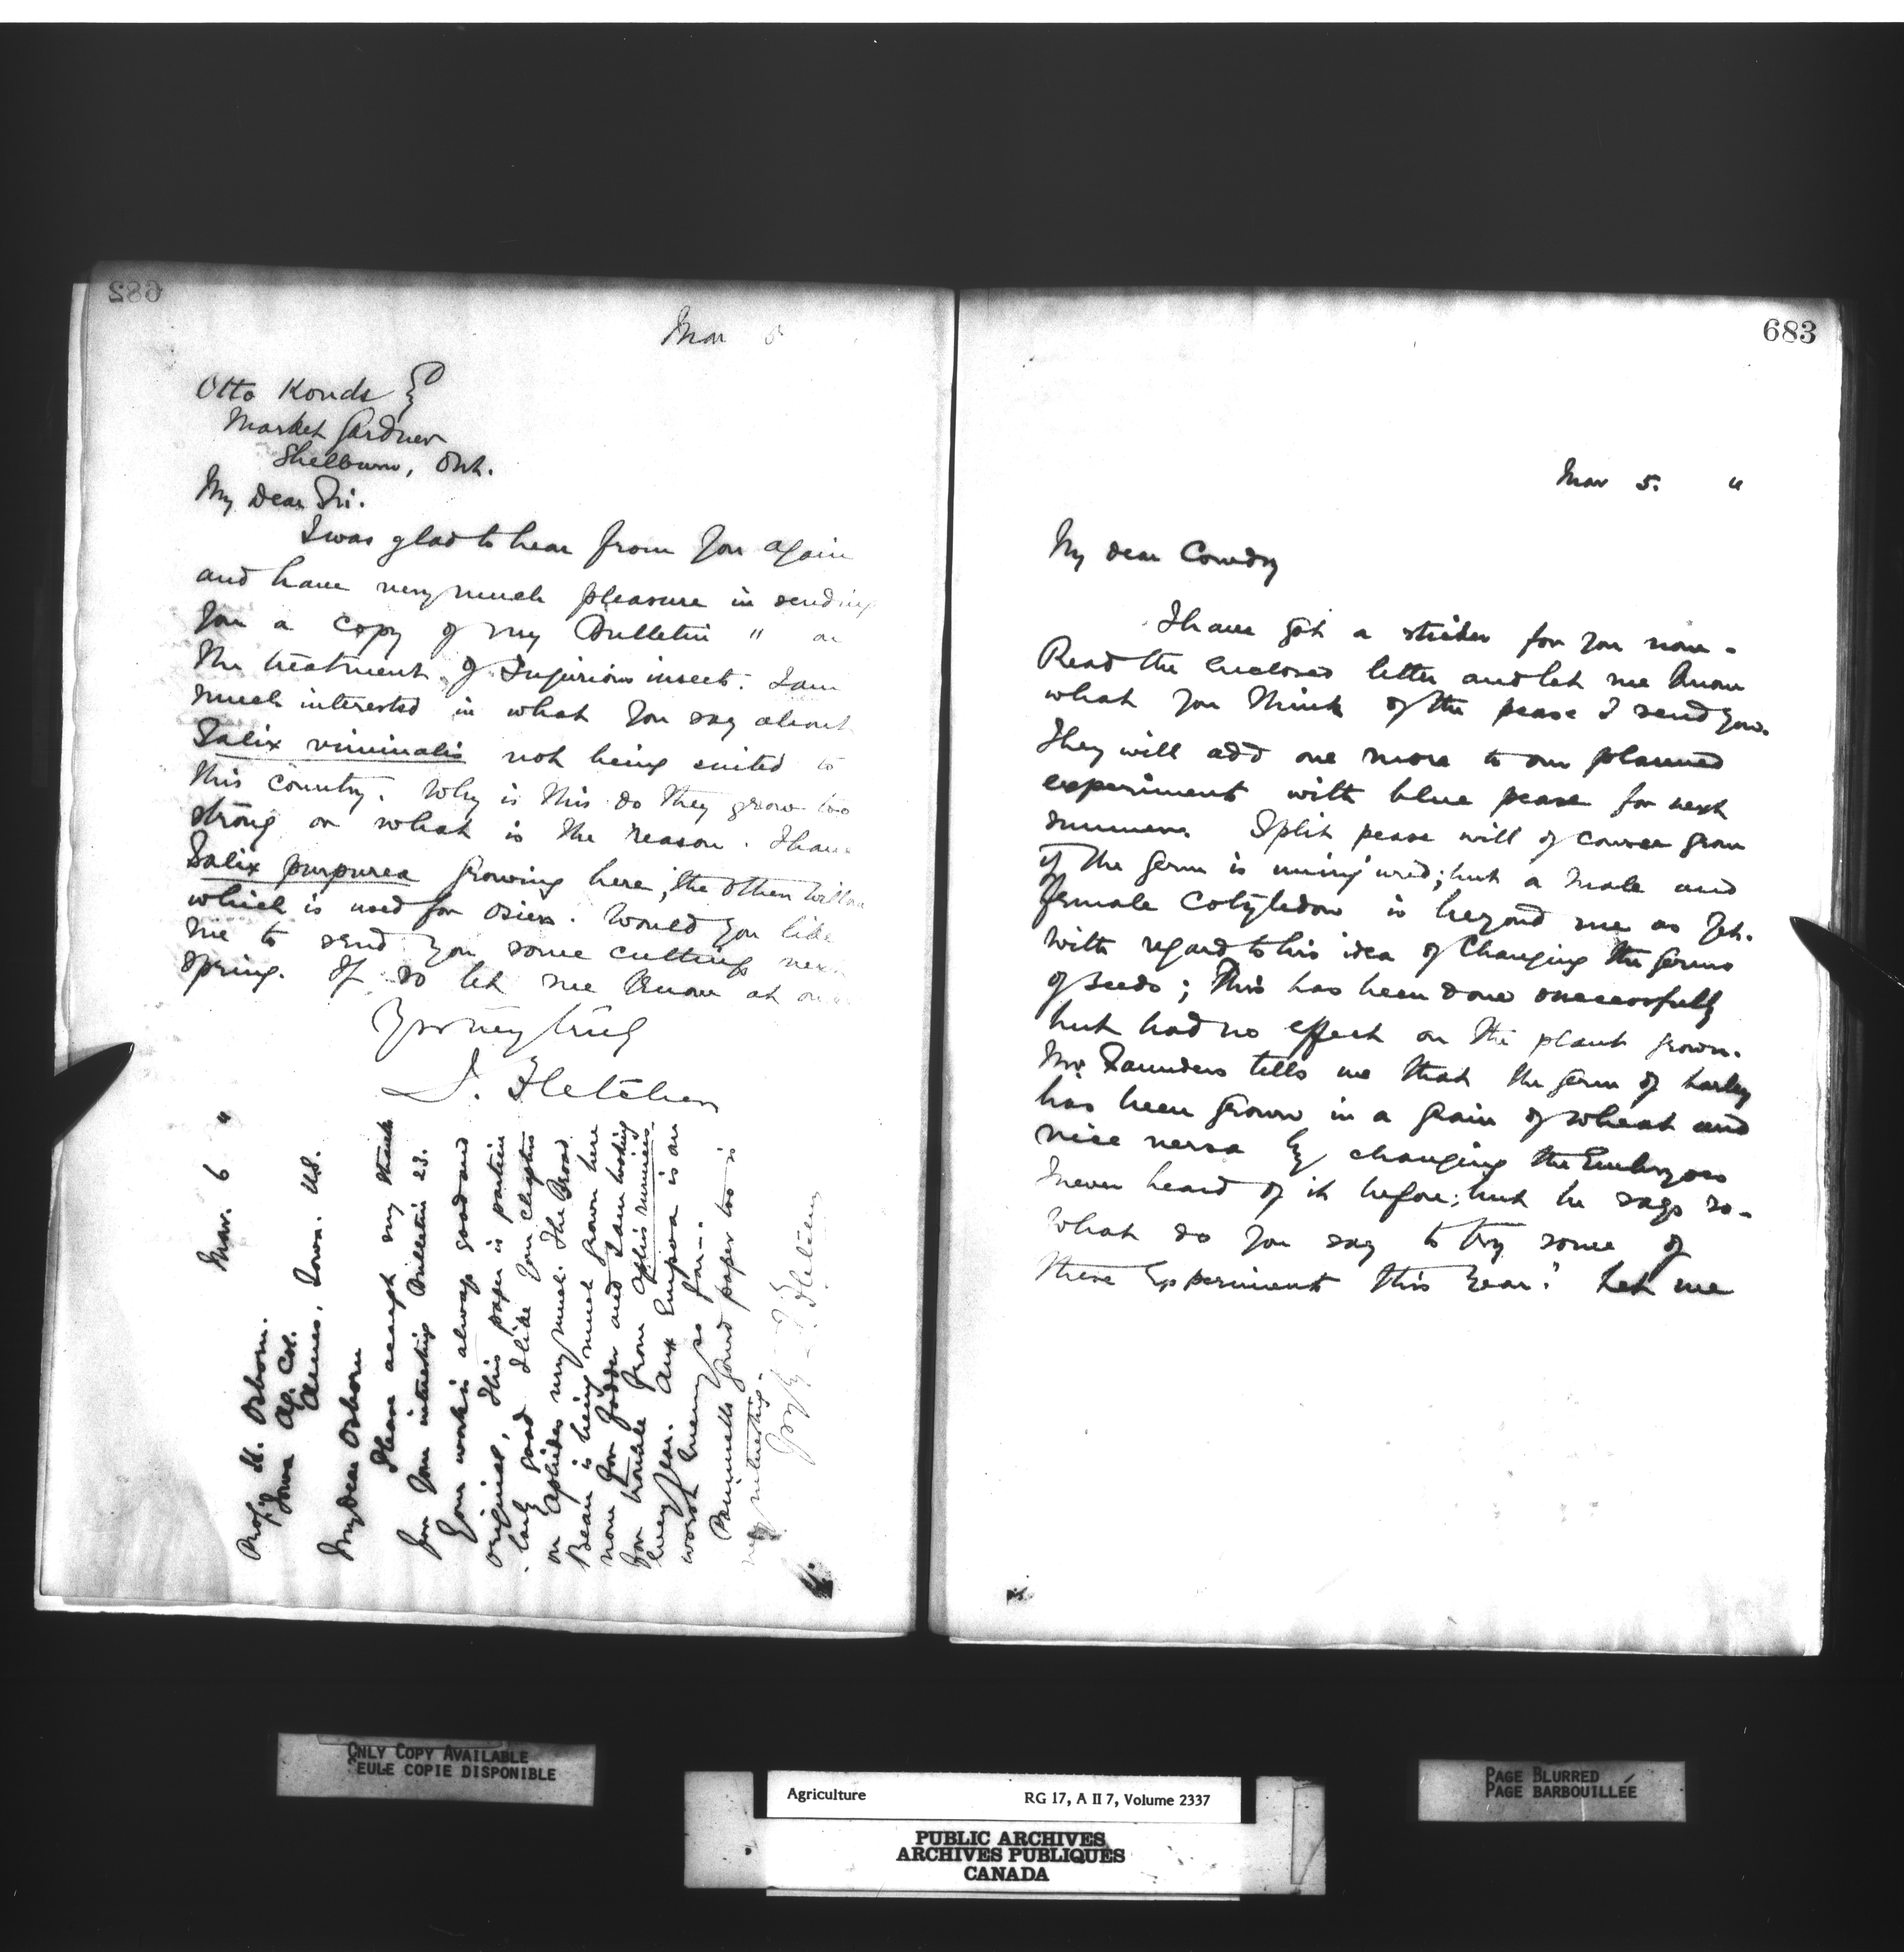 682
Mar 5
Otto Konds
Market Gardner
Shelburn, Ont.
My Dear Sir.
I was glad to hear from you again
and have very much pleasure in sending
you a copy of my Bulletin " on
the treatment of Injurious insects. I am
much interested in what you say about
Salix viminalis not being suited to
this country. Why is this do they grow too
strong or what is the reason. I have
Salix purpurea growing here, the other willow
which is used for osiers. Would you like
me to send you some cuttings next
spring. If so let me know at once
Yrs very truly
J. Fletcher
Mar. 6 "
Prof. H. Osborn.
Iowa Ag. Col.
Ames, Iowa. U.S.
My dear Osborn
Please accept my thanks
for your interesting Bulletin 23.
Your work is always good and
original, this paper is particu
-larly good I like your chapter
on aphides very much. The Broad
Bean is being much grown here
now for fodder and I am looking
for trouble from aphis rumicis
every year. An Empusa is our
worst enemy so far.
paper too is
very interesting.
J. Fletcher
683
Mar 5. "
My dear Cowdry
I have got a sticker for you now -
Read the enclosed letter and let me know
what you think of the pease I send you.
They will add one more to our planned
experiments with blue pease for next
summer. Split pease will of course grow
if the germ is uninjured; but a male and
female cotyledon is beyond me as yet.
With regard to his idea of changing the germs
of seeds; this has been done successfully
but had no effect on the plant grown.
Mr. Saunders tells me that the germ of barley
has been grown in a grain of wheat and
vice versa by changing the Embryoes
I never heard of it before; but he says so -
What do you say to try some of
these Experiments this year? Let me
ONLY COPY AVAILABLE
SEULE COPIE DISPONIBLE
Agriculture RG 17, A II 7, Volume 2337
PUBLIC ARCHIVES
ARCHIVES PUBLIQUES
CANADA
PAGE BLURRED
PAGE BARBOUILLÉE